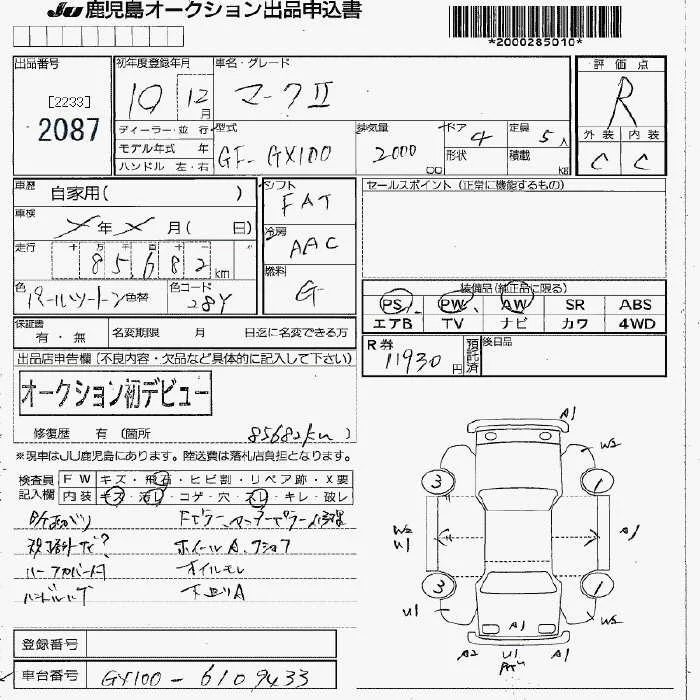 JU 鹿児島オークション出品申込書
*2000285010*
出品番号
[2233]
2087
初年度登録年月
10 12月
車名・グレード
マークII
評価点
R
外装 内装
C C
ディーラー・並行
モデル年式 年
ハンドル 左・右
型式
GF-GX100
排気量
2000 cc
ドア 4
形状
定員 5人
積載 kg
車歴
自家用( )
車検
メ年メ月( 日)
走行
十万千百十一
85,682 km
色
パールツートン 色替
色コード
28Y
シフト
FAT
冷房
AAC
燃料
G
セールスポイント (正常に機能するもの)
装備品(純正品に限る)
PS PW AW SR ABS
エアB TV ナビ カワ 4WD
保証書
有・無
名変期限 月 日迄に名変できる方
R券
11930円
預託済
後日品
出品店申告欄(不良内容・欠品など具体的に記入して下さい)
オークション初デビュー
修復歴 有 (箇所 85682km)
※現車はJU鹿児島にあります。陸送費は落札店負担となります。
検査員記入欄
FW キズ・飛石・ヒビ割・リペア跡・X要
内装 キズ・汚レ・コゲ・穴・スレ・キレ・破レ
ホイールA
オイルモレ
下回りA
ハンドルハゲ
A1
W2
3
1
W2
U1
A1
3
1
U1
W2
A1
A2
U1
A1
登録番号
車台番号
GX100-6109433